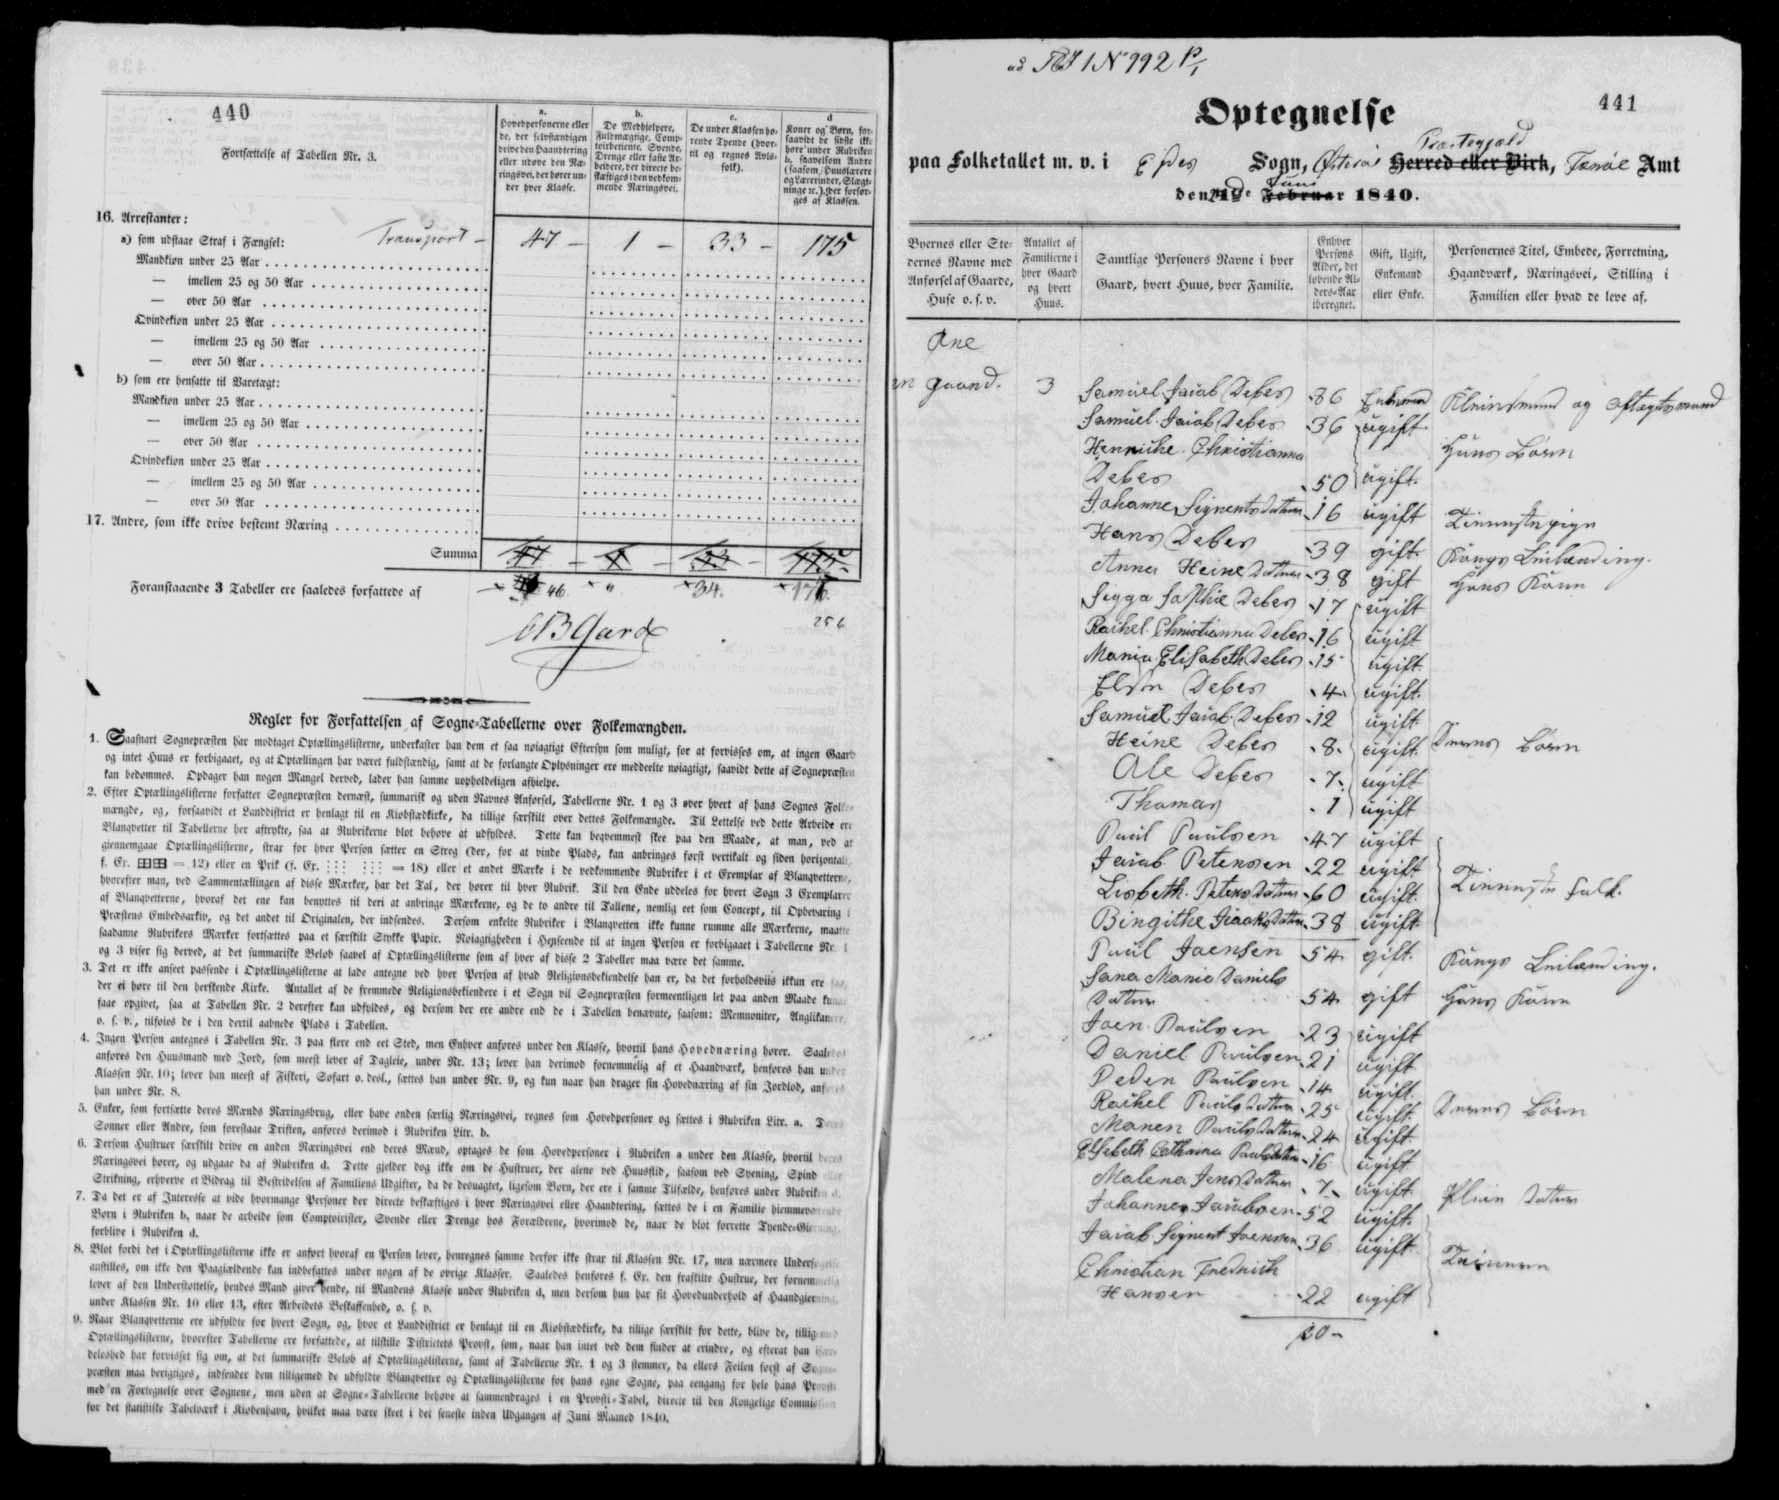 440
Fortsættelse af Tabellen Nr. 3.
a.
Hovedpersonerne eller
de, der selvstændigen
drive den Haandtering
eller udøve den Næ-
ringsvei, der hører un-
der hver Klasse.
b.
De Medhjelpere,
Fuldmægtige, Comp-
toirbetiente, Svende,
Drenge eller faste Ar-
beidere, der directe be-
skæftiges i den vedkom-
mende Næringsvei.
c.
De under Klassen hø-
rende Tyende (hvor-
til og regnes Avls-
folk).
d
Koner og Børn, for-
saavidt de sidste ikke
høre under Rubriken
b, saavelsom Andre
(saasom, Huuslærere
og Lærerinder, Slægt-
ninge ec.), der forsør-
ges af Klassen.
16. Arrestanter:
a) som udstaae Straf i Fængsel: Transport - 47 - 1 - 33 - 175
Mandkiøn under 25 Aar
— imellem 25 og 50 Aar
— over 50 Aar
Qvindekiøn under 25 Aar
— imellem 25 og 50 Aar
— over 50 Aar
b) som ere hensatte til Varetægt:
Mandkiøn under 25 Aar
— imellem 25 og 50 Aar
— over 50 Aar
Qvindekiøn under 25 Aar
— imellem 25 og 50 Aar
— over 50 Aar
17. Andre, som ikke drive bestemt Næring
Summa 47 - 1 - 33 - 175-
Foranstaaende 3 Tabeller ere saaledes forfattede af 46 " 34. 176.
256
Regler for Forfattelsen af Sogne-Tabellerne over Folkemængden.
1. Saasnart Sognepræsten har modtaget Optællingslisterne, underkaster han dem et saa nøiagtigt Eftersyn som muligt, for at forvisses om, at ingen Gaard
og intet Huus er forbigaaet, og at Optællingen har været fuldstændig, samt at de forlangte Oplysninger ere meddeelte nøiagtigt, saavidt dette af Sognepræsten
kan bedømmes. Opdager han nogen Mangel derved, lader han samme uopholdeligen afhielpe.
2. Efter Optællingslisterne forfatter Sognepræsten dernæst, summarisk og uden Navnes Anførsel, Tabellerne Nr. 1 og 3 over hvert af hans Sognes Folke-
mængde, og, forsaavidt et Landdistrict er henlagt til en Kiøbstædkirke, da tillige særskilt over dettes Folkemængde. Til Lettelse ved dette Arbeide ere
Blanqvetter til Tabellerne her aftrykte, saa at Rubrikerne blot behøve at udfyldes. Dette kan beqvemmest skee paa den Maade, at man, ved at
giennemgaae Optællingslisterne, strax for hver Person sætter en Streg (der, for at vinde Plads, kan anbringes først vertikalt og siden horizontalt,
f. Ex. = 12) eller en Prik (f. Ex. = 18) eller et andet Mærke i de vedkommende Rubriker i et Exemplar af Blanqvetterne,
hvorefter man, ved Sammentællingen af disse Mærker, har det Tal, der hører til hver Rubrik. Til den Ende uddeles for hvert Sogn 3 Exemplarer
af Blanqvetterne, hvoraf det ene kan benyttes til deri at anbringe Mærkerne, og de to andre til Tallene, nemlig eet som Concept, til Opbevaring i
Præstens Embedsarkiv, og det andet til Originalen, der indsendes. Dersom enkelte Rubriker i Blanqvetten ikke kunne rumme alle Mærkerne, maatte
saadanne Rubrikers Mærker fortsættes paa et særskilt Stykke Papir. Nøiagtigheden i Henseende til at ingen Person er forbigaaet i Tabellerne Nr. 1
og 3 viser sig derved, at det summariske Beløb saavel af Optællingslisterne som af hver af disse 2 Tabeller maa være det samme.
3. Det er ikke anseet passende i Optællingslisterne at lade antegne ved hver Person af hvad Religionsbekiendelse han er, da det forholdsviis ikkun ere faa,
der ei høre til den herskende Kirke. Antallet af de fremmede Religionsbekiendere i et Sogn vil Sognepræsten formeentligen let paa anden Maade kunne
faae opgivet, saa at Tabellen Nr. 2 derefter kan udfyldes, og dersom der ere andre end de i Tabellen benævnte, saasom: Memnoniter, Anglikanere,
o. s. v., tilføies de i den dertil aabnede Plads i Tabellen.
4. Ingen Person antegnes i Tabellen Nr. 3 paa flere end eet Sted, men Enhver anføres under den Klasse, hvortil hans Hovednæring hører. Saaledes
anføres den Huusmand med Jord, som meest lever af Dagleie, under Nr. 13; lever han derimod fornemmelig af et Haandværk, henføres han under
Klassen Nr. 10; lever han meest af Fiskeri, Søfart o. desl., sættes han under Nr. 9, og kun naar han drager sin Hovednæring af sin Jordlod, anføres
han under Nr. 8.
5. Enker, som fortsætte deres Mænds Næringsbrug, eller have anden særlig Næringsvei, regnes som Hovedpersoner og sættes i Rubriken Litr. a. Deres
Sønner eller Andre, som forestaae Driften, anføres derimod i Rubriken Litr. b.
6. Dersom Hustruer særskilt drive en anden Næringsvei end deres Mænd, optages de som Hovedpersoner i Rubriken a under den Klasse, hvortil deres
Næringsvei hører, og udgaae da af Rubriken d. Dette gielder dog ikke om de Hustruer, der alene ved Huusflid, saasom ved Syening, Spind eller
Strikning, erhverve et Bidrag til Bestridelsen af Familiens Udgifter, da de desuagtet, ligesom Børn, der ere i samme Tilfælde, henføres under Rubriken d.
7. Da det er af Interesse at vide hvormange Personer der directe beskæftiges i hver Næringsvei eller Haandtering, sættes de i en Familie hiemmeværende
Børn i Rubriken b, naar de arbeide som Comptoirister, Svende eller Drenge hos Forældrene, hvorimod de, naar de blot forrette Tyende-Gierning,
forblive i Rubriken d.
8. Blot fordi det i Optællingslisterne ikke er anført hvoraf en Person lever, henregnes samme derfor ikke strax til Klassen Nr. 17, men nærmere Undersøgelse
anstilles, om ikke den Paagiældende kan indbefattes under nogen af de øvrige Klasser. Saaledes henføres f. Ex. den fraskilte Hustrue, der fornemmelig
lever af den Understøttelse, hendes Mand giver hende, til Mandens Klasse under Rubriken d, men dersom hun har sit Hovedunderhold af Haandgierning,
under Klassen Nr. 10 eller 13, efter Arbeidets Beskaffenhed, o. s. v.
9. Naar Blanqvetterne ere udfyldte for hvert Sogn, og, hvor et Landdistrict er henlagt til en Kiøbstædkirke, da tillige særskilt for dette, blive de, tilligemed
Optællingslisterne, hvorefter Tabellerne ere forfattede, at tilstille Districtets Provst, som, naar han intet ved dem finder at erindre, og efterat han
deloshed har forvisset sig om, at det summariske Beløb af Optællingslisterne, samt af Tabellerne Nr. 1 og 3 stemmer, da ellers Feilen først af Sogne-
præsten maa berigtiges, indsender dem tilligemed de udfyldte Blanqvetter og Optællingslisterne for hans egne Sogne, paa eengang for hele hans Provsti
med en Fortegnelse over Sognene, men uden at Sogne-Tabellerne behøve at sammendrages i en Provsti-Tabel, directe til den Kongelige Commission
for det statistiske Tabelværk i Kiøbenhavn, hvilket maa være skeet i det seneste inden Udgangen af Juni Maaned 1840.
441
Optegnelse
Præstegjeld
paa Folketallet m. v. i Ejdes Sogn, Østerøe Herred eller Birk, Færøe Amt
Juni
den Februar 1840.
Byernes eller Ste-
dernes Navne med
Anførsel af Gaarde,
Huse o. s. v.
Antallet af
Familierne i
hver Gaard
og hvert
Huus.
Samtlige Personers Navne i hver
Gaard, hvert Huus, hver Familie.
Enhver
Persons
Alder, det
løbende Al-
ders-Aar
iberegnet.
Gift, Ugift,
Enkemand
eller Enke.
Personernes Titel, Embede, Forretning,
Haandværk, Næringsvei, Stilling i
Familien eller hvad de leve af.
Ane
en gaard. 3 Samuel Jacob Debes 86 Enkemand og Aftægtsmand
Samuel Jacob Debes 36 ugift
Hennicke Christianna Hans Børn
Debes 50 ugift.
Johanne Sigvertsdatter 16 ugift Tienestepige
Hans Debes 39 gift Kongs Leilænding.
Anna Heinesdatter 38 gift Hans Kone
Sigga Sophie Debes 17 ugift
Rachel Christianna Debes 16 ugift
Maria Elisabeth Debes 15 ugift.
Elsn Debes 4 ugift.
Samuel Jacob Debes 12 ugift
Heine Debes 8 ugift. Deres Børn
Ole Debes 7 ugift
Thomas 1 ugift
Poul Poulsen 47 ugift
Jacob Petersen 22 ugift
Lisbeth Petersdatter 60 ugift. Tieneste folk.
Birgithe Isaaksdatter 38 ugift
Poul Joensen 54 gift. Kongs Leilænding.
Sanna Maria Daniels
Datter 54 gift Hans Kone
Joen Poulsen 23 ugift
Daniel Poulsen 21 ugift
Peder Poulsen 14 ugift.
Rachel Poulsdatter 25 ugift. Deres Børn
Maren Poulsdatter 24 ugift
Elsebeth Cathrina Poulsdatter 16 ugift
Malena Jensdatter 7 ugift Pleie datter
Johannes Jacobsen 52 ugift.
Jacob Sigvert Joensen 36 ugift Tienere
Christian Fredrich
Hansen 22 ugift